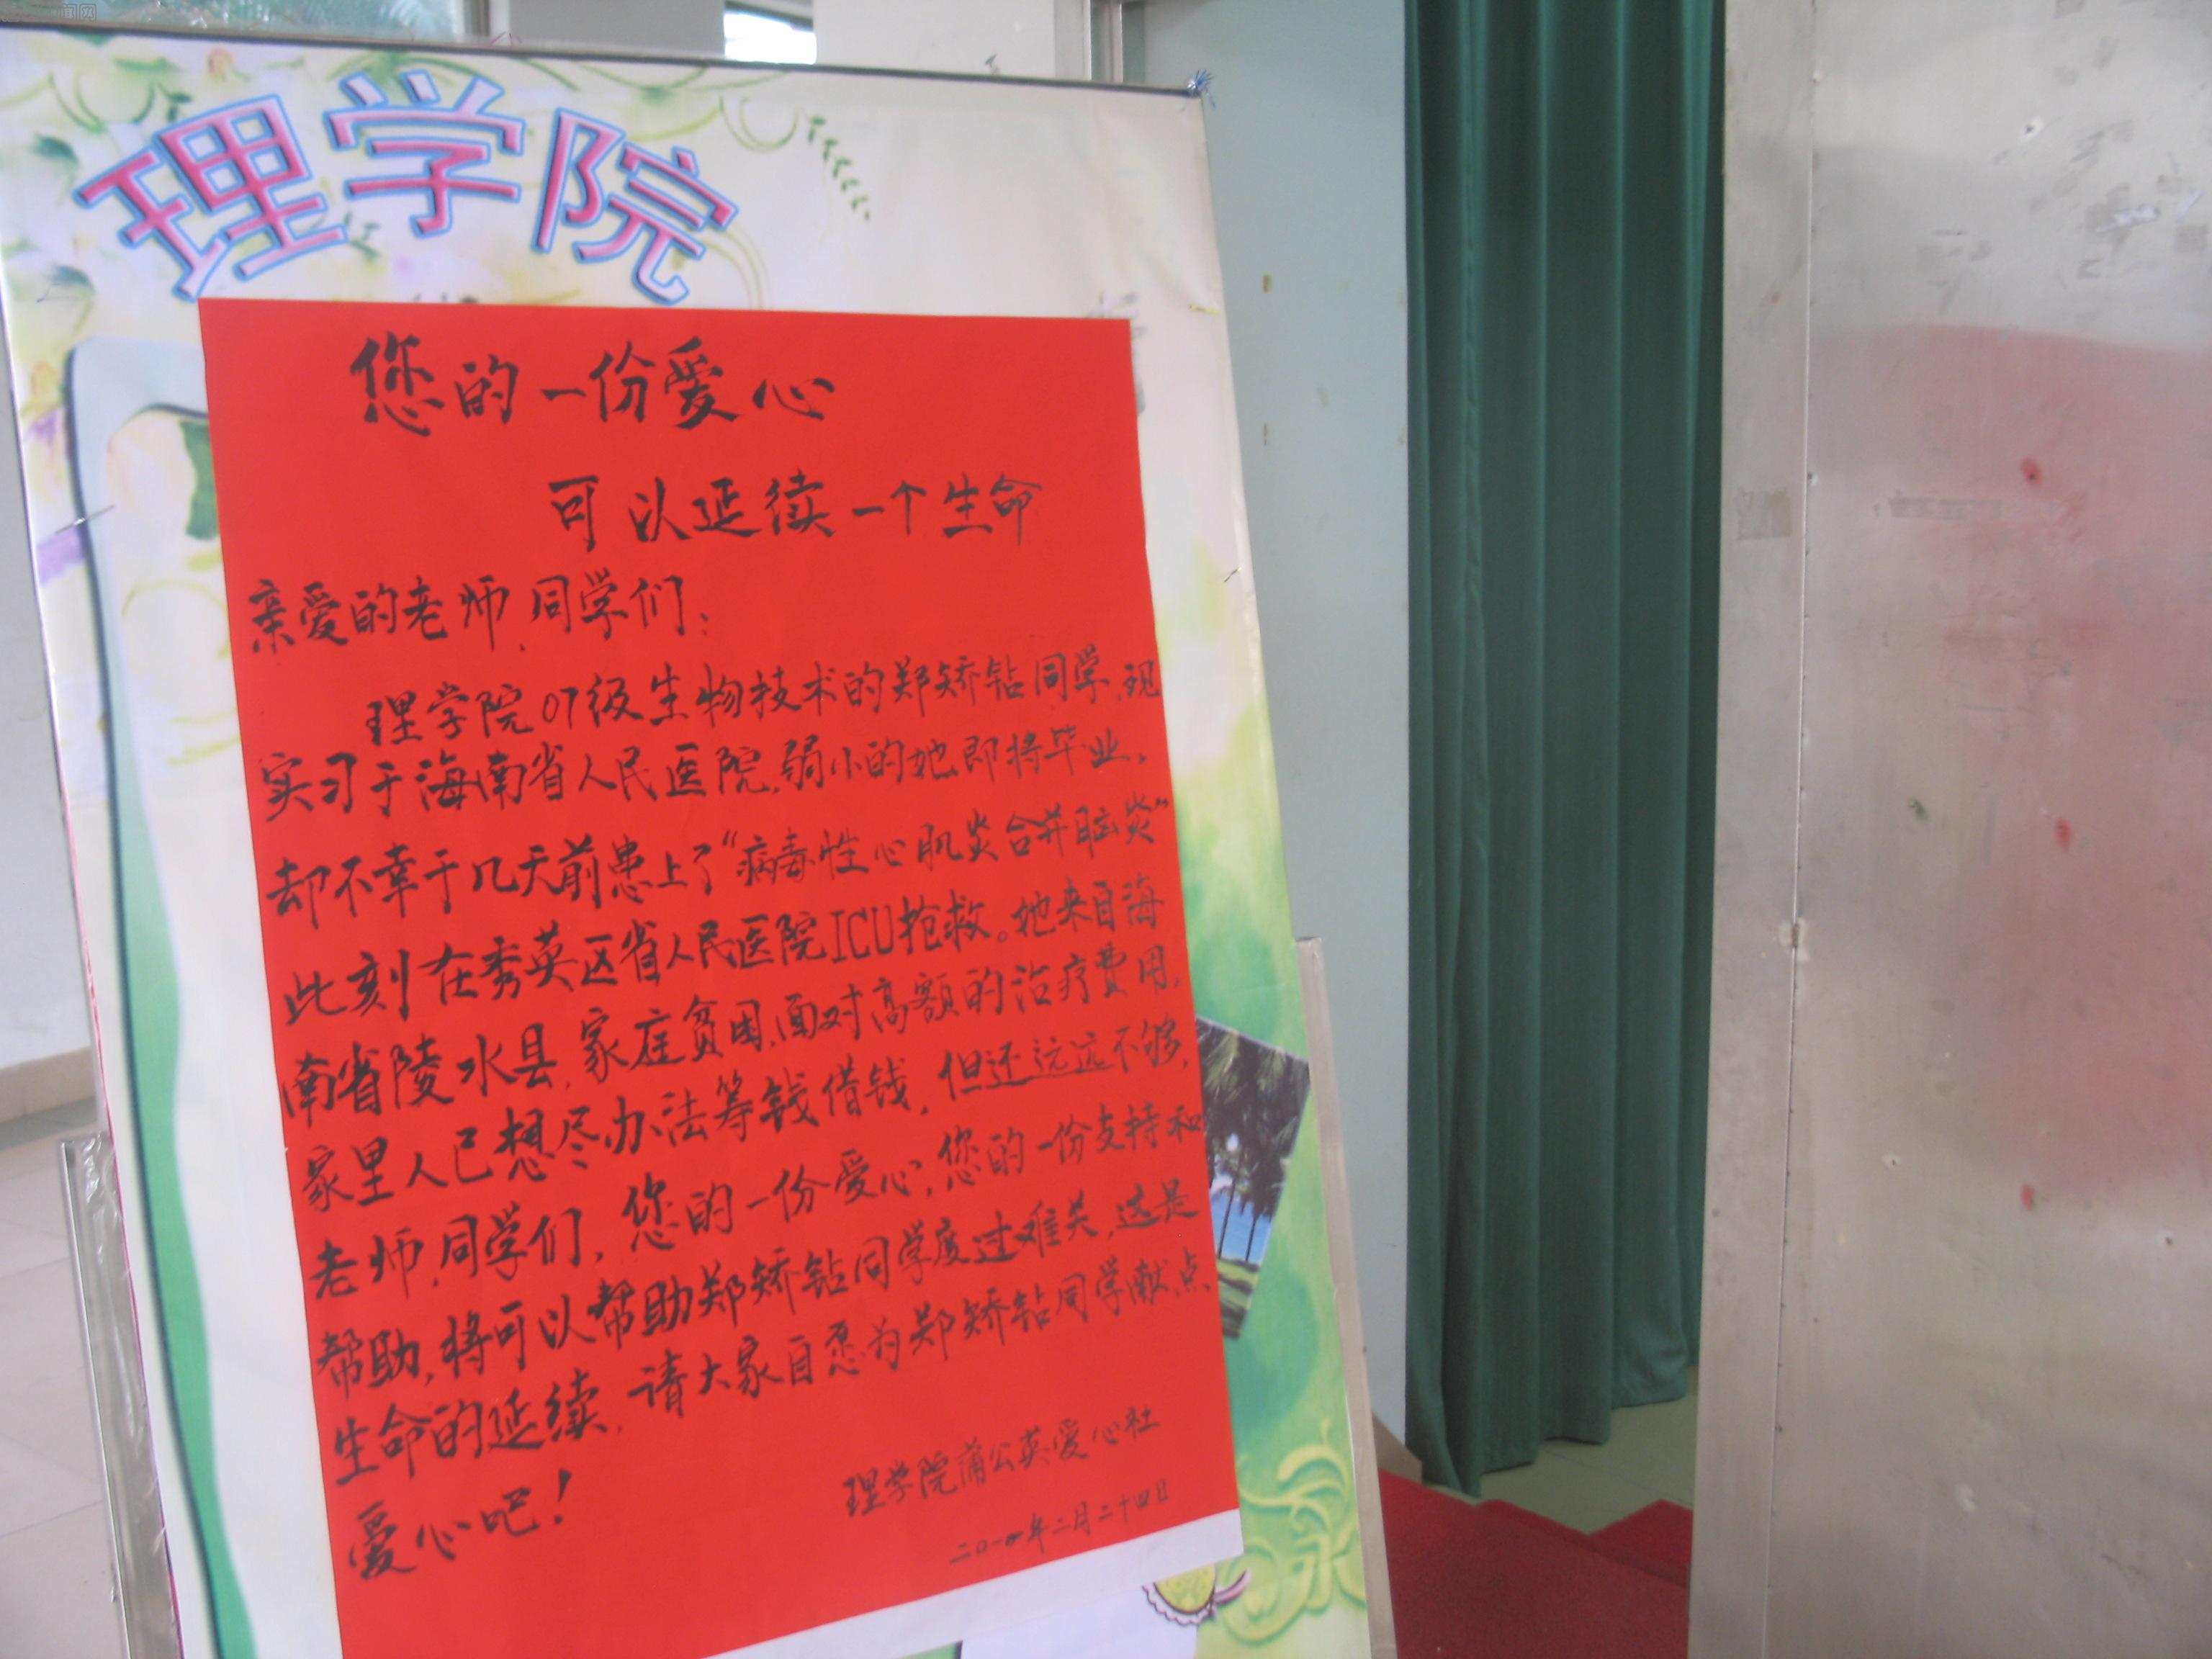 理学院
您的一份爱心
可以延续一个生命
亲爱的老师、同学们：
理学院07级生物技术的郑矫钻同学，现
实习于海南省人民医院，弱小的她即将毕业，
却不幸于几天前患上了“病毒性心肌炎合并脑炎”
此刻在秀英区省人民医院ICU抢救。她来自海
南省陵水县，家庭贫困，面对高额的治疗费用，
家里人已想尽办法筹钱借钱，但还远远不够，
老师、同学们，您的一份爱心，您的一份支持和
帮助，将可以帮助郑矫钻同学度过难关，这是
生命的延续，请大家自愿为郑矫钻同学献点
爱心吧！
理学院蒲公英爱心社
二〇一〇年二月二十四日